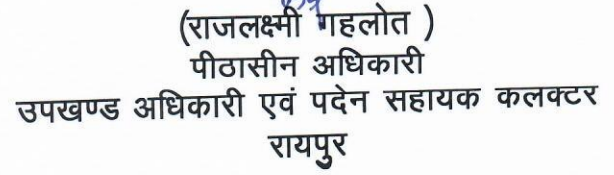 (राजलक्ष्मी गहलोत )
पीठासीन अधिकारी
उपखण्ड अधिकारी एवं पदेन सहायक कलक्टर
रायपुर